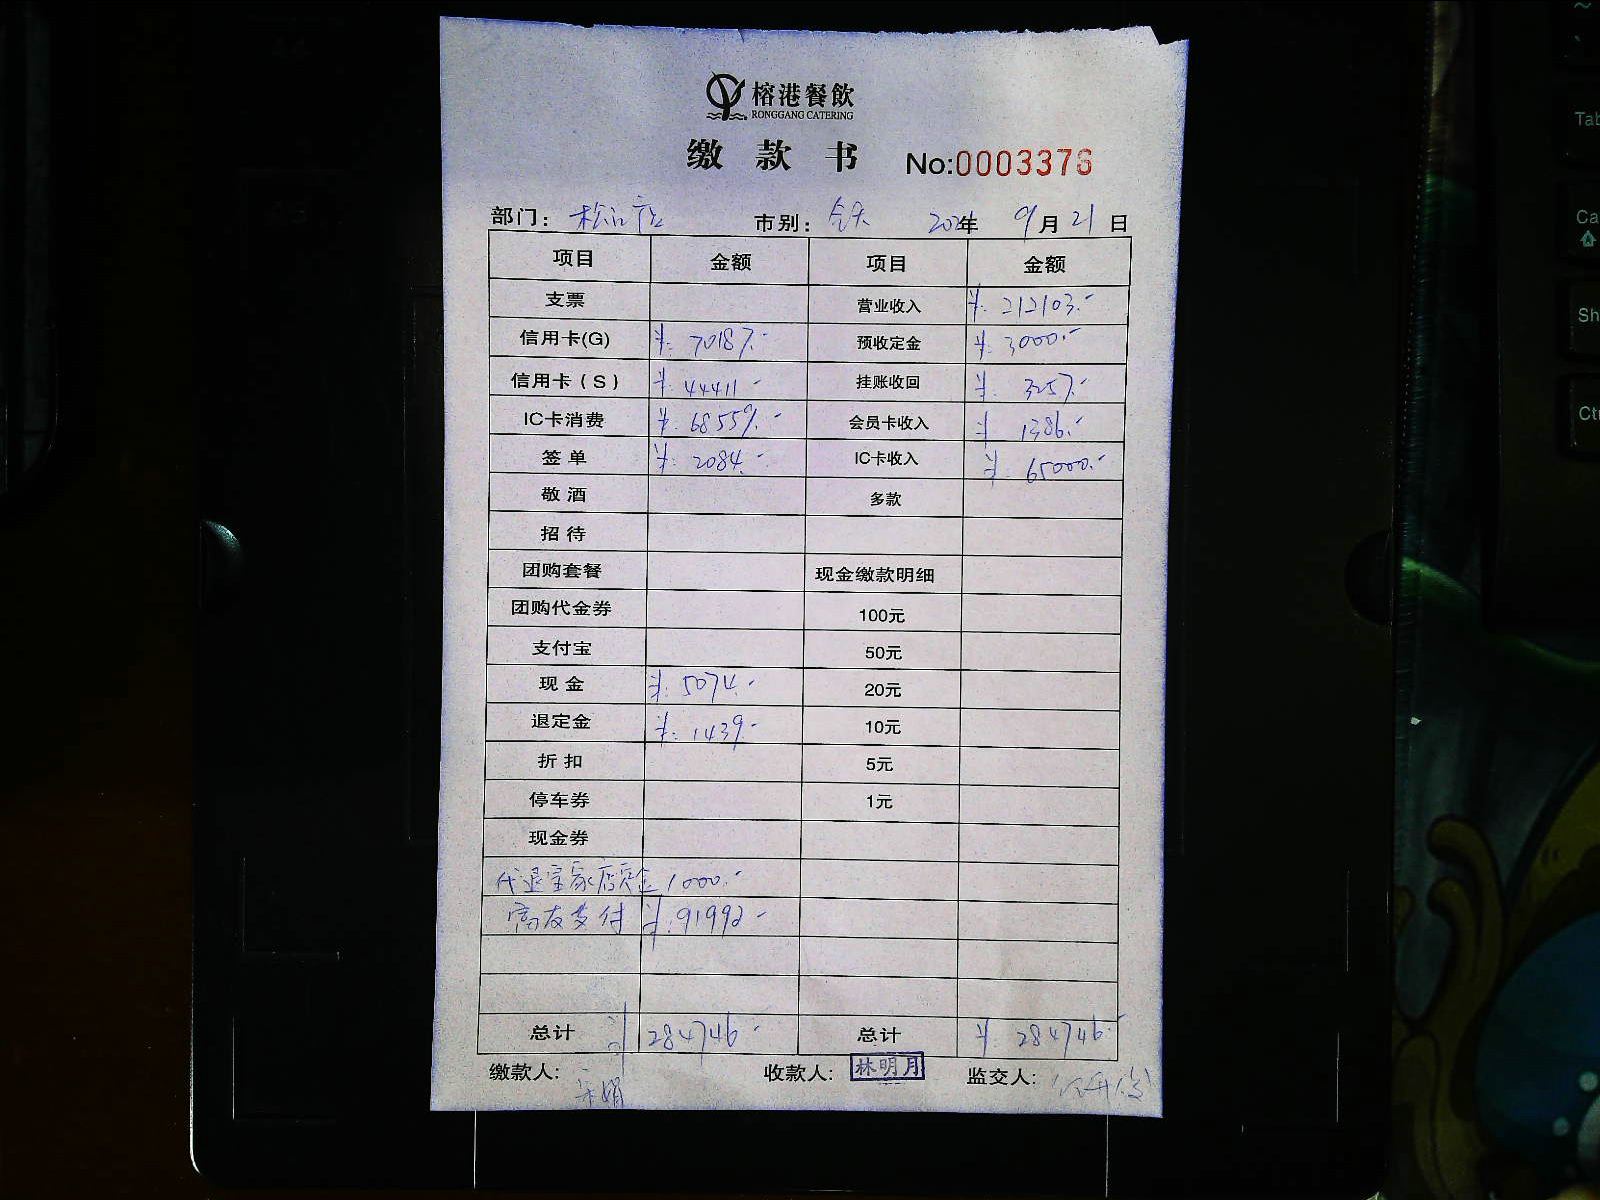 榕港餐飲
RONGGANG CATERING
缴款书 No:0003376
部门: 松江店 市别: 全天 2021年 9月21日
项目 金额 项目 金额
支票 营业收入 ¥: 212103.-
信用卡(G) ¥: 70187.- 预收定金 ¥: 3000.-
信用卡(S) ¥: 44411 - 挂账收回 ¥: 3257.-
IC卡消费 ¥: 68559.- 会员卡收入 ¥: 1386.-
签单 ¥: 2084.- IC卡收入 ¥: 65000.-
敬酒 多款
招待
团购套餐 现金缴款明细
团购代金券 100元
支付宝 50元
现金 ¥: 5074.- 20元
退定金 ¥: 1439.- 10元
折扣 5元
停车券 1元
现金券
代退宝家店定金 1000.-
商友支付 ¥: 91992 -
总计 ¥ 284746 - 总计 ¥ 284746.-
缴款人: 收款人: 林明月 监交人: